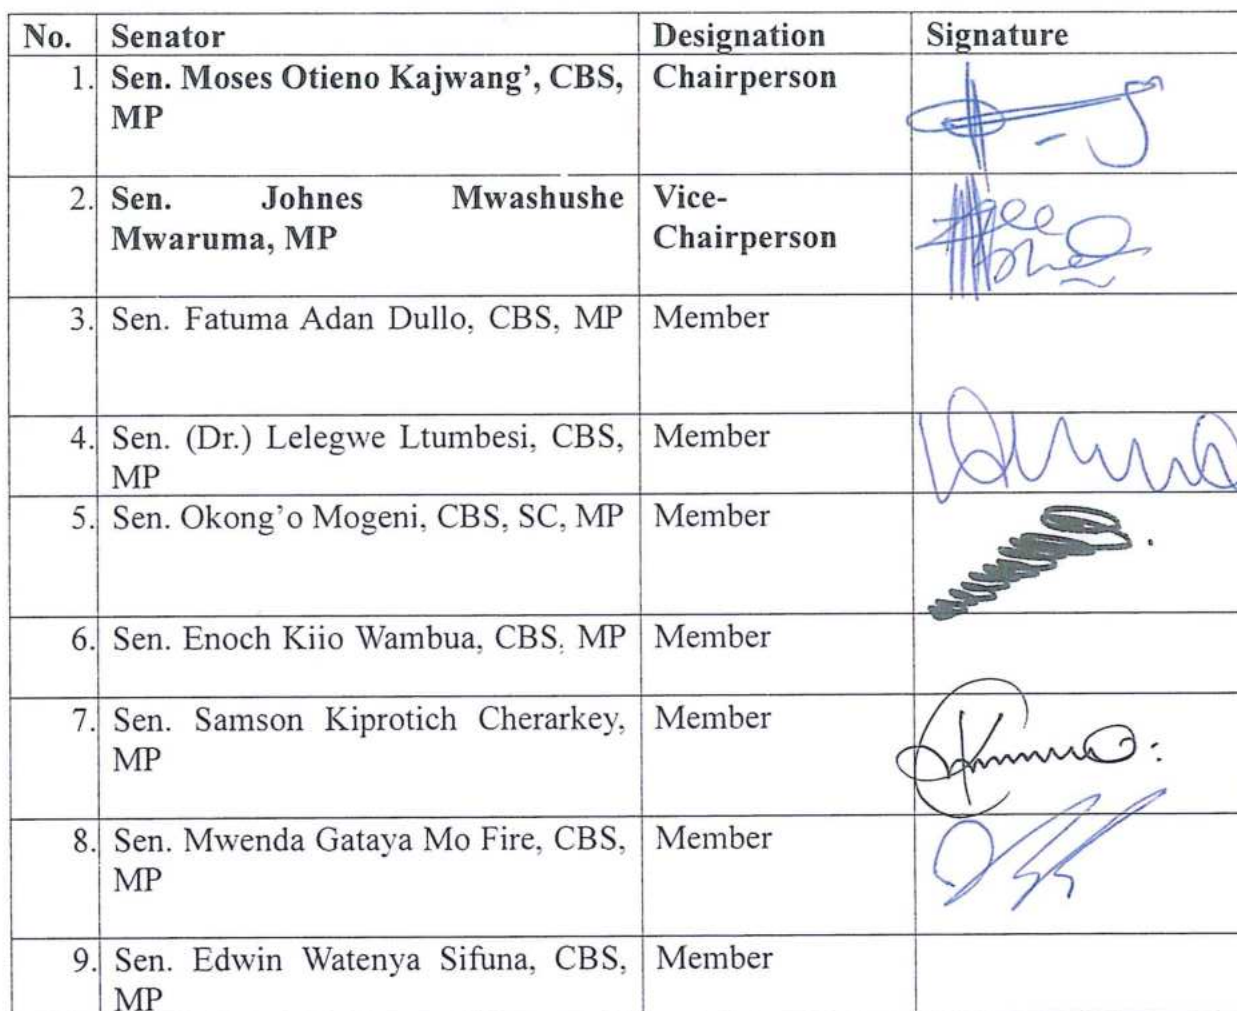 No. Senator Designation Signature
1. Sen. Moses Otieno Kajwang', CBS, Chairperson
MP
2. Sen. Johnes Mwashushe Vice-
Mwaruma, MP Chairperson
3. Sen. Fatuma Adan Dullo, CBS, MP Member
4. Sen. (Dr.) Lelegwe Ltumbesi, CBS, Member
MP
5. Sen. Okong'o Mogeni, CBS, SC, MP Member
6. Sen. Enoch Kiio Wambua, CBS, MP Member
7. Sen. Samson Kiprotich Cherarkey, Member
MP
8. Sen. Mwenda Gataya Mo Fire, CBS, Member
MP
9. Sen. Edwin Watenya Sifuna, CBS, Member
MP